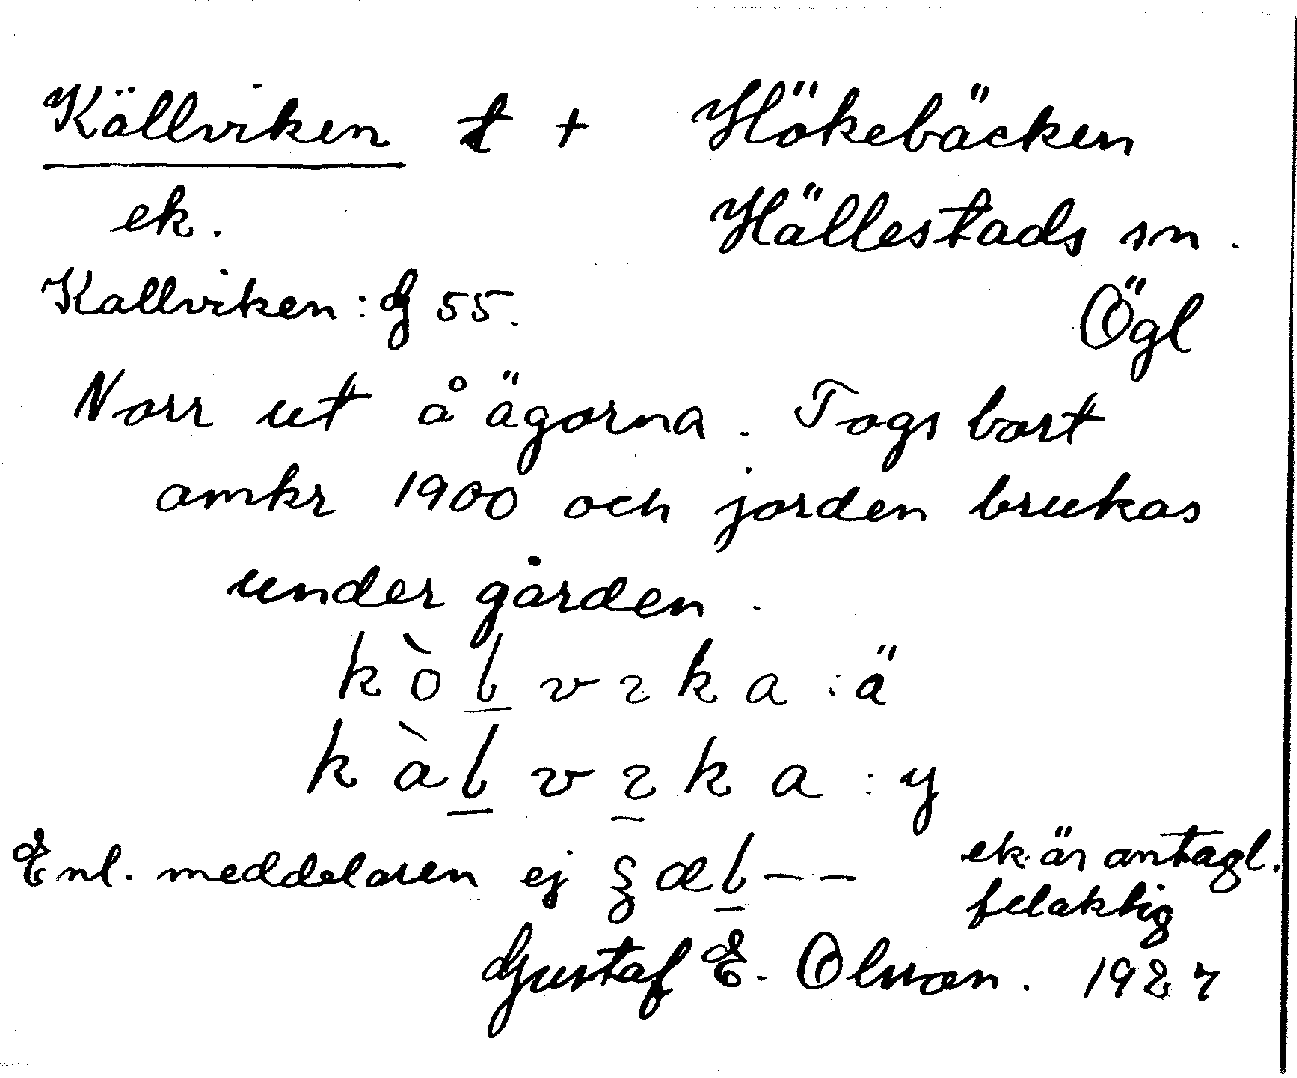 Källviken t + Hökebäcken
ek. Hällestads sn.
Kallviken: G 55. Ögl
Norr ut å ägorna. Togs bort
omkr 1900 och jorden brukas
under gården.
kòlvıka :ä
kàlvıka :y
Enl. meddelaren ej ʂæl–– ek är antagl.
felaktig
Gustaf E. Olsson. 1927